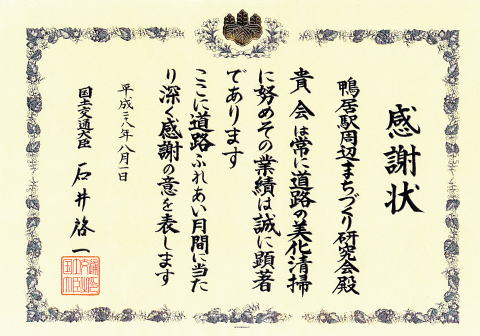 感謝状
鴨居駅周辺まちづくり研究会殿
貴会は常に道路の美化清掃
に努めその業績は誠に顕著
であります
ここに道路ふれあい月間に当た
り深く感謝の意を表します
平成二八年八月一日
国土交通大臣 石井啓一
国土交通大臣之印